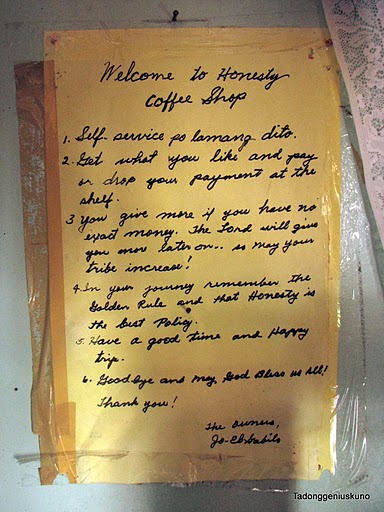 Welcome to Honesty
Coffee Shop
1. Self-service po lamang dito.
2. Get what you like and pay
or drop your payment at the
shelf.
3 You give more if you have no
exact money. The Lord will give
you more later on.. so may your
tribe increase!
4. In your journey remember the
Golden Rule and that Honesty is
the best Policy.
5. Have a good time and Happy
trip.
6. Goodbye and may God Bless us All!
Thank you!
The Owners,
Tadonggeniuskuno